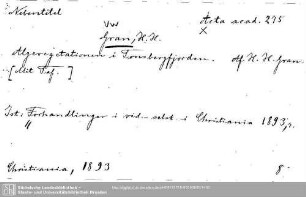 Nebentitel
Vw Acta acad. 275
x
Gran, H. H.
Algevegetationen i Tönsbergfjorden. Af H. H. Gran.
[Mit Taf.]
Ist: Forhandlinger i vid.-selsk. i Christiania 1893,
"
Christiania, 1893 8°
Sächsische Landesbibliothek –
Staats- und Universitätsbibliothek Dresden